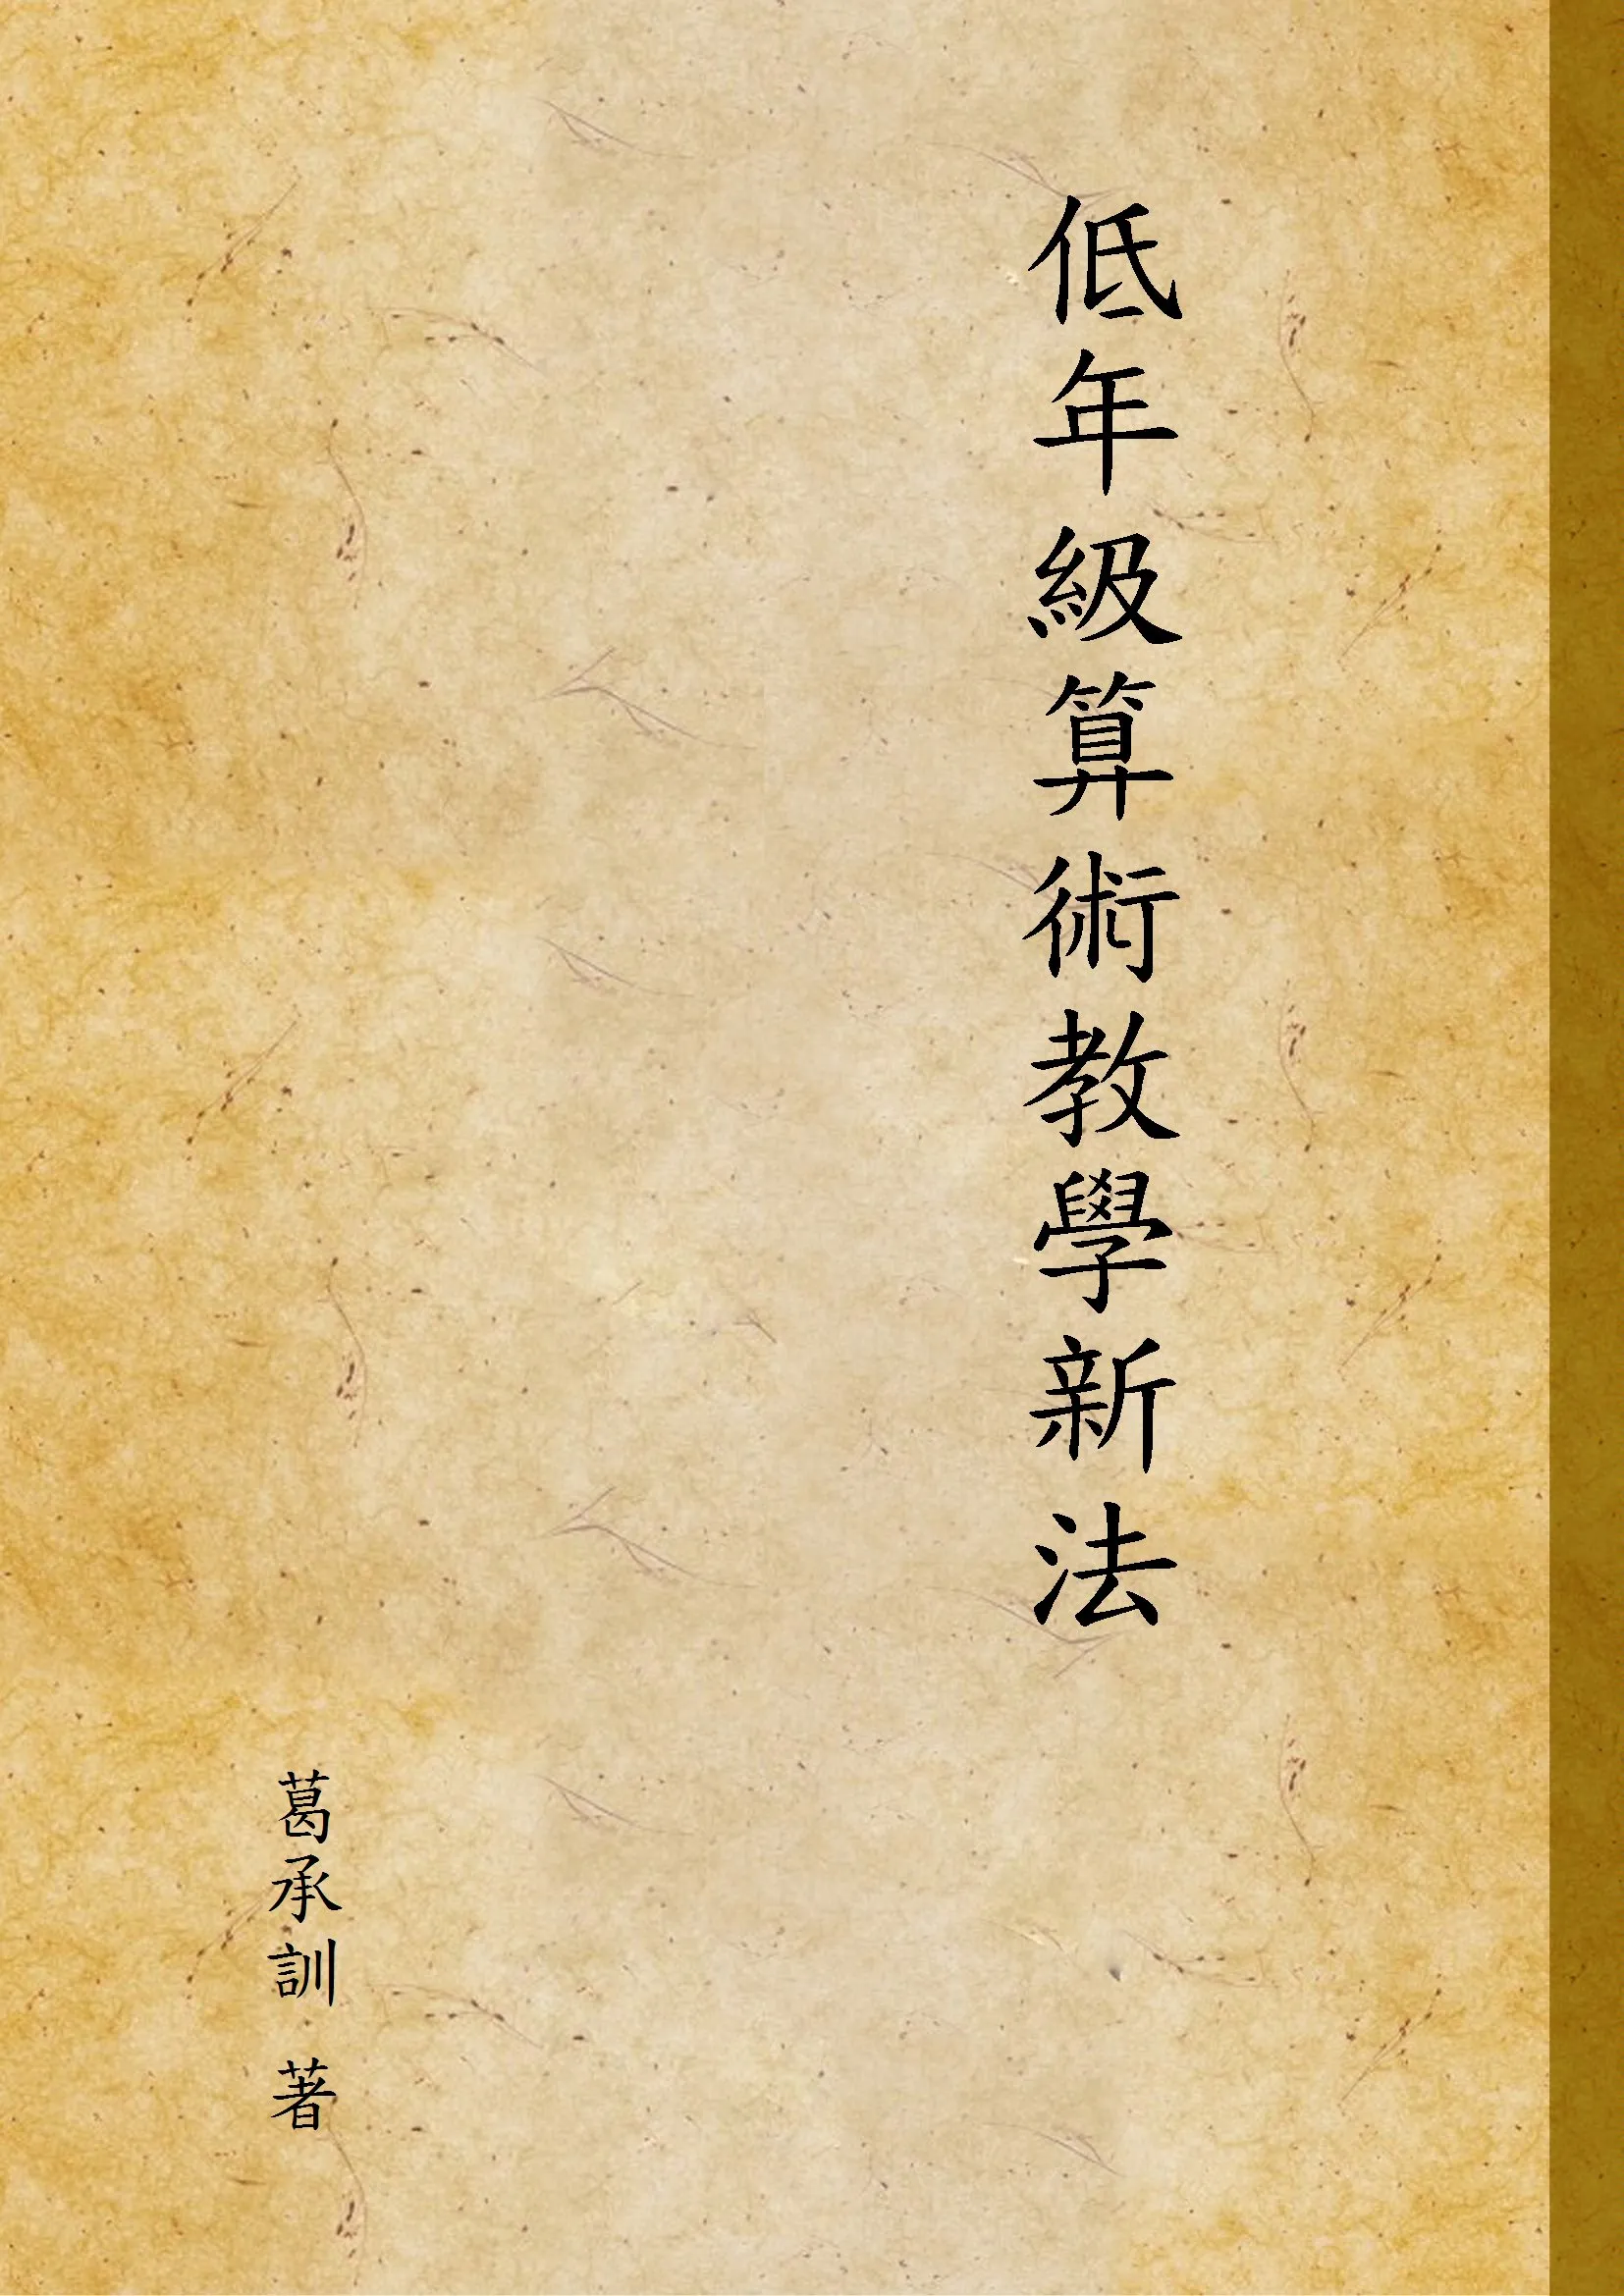 低年級算術教學新法
葛承訓 著